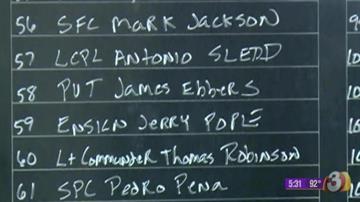 56 SFC MARK JACKSON
57 LCPL ANTONIO SLEDD
58 PVT James EbberS
59 ENSIGN JERRY POPLE
60 Lt Commander Thomas Robinson
61 SPC PEDRO PENA
5:31 92° 3